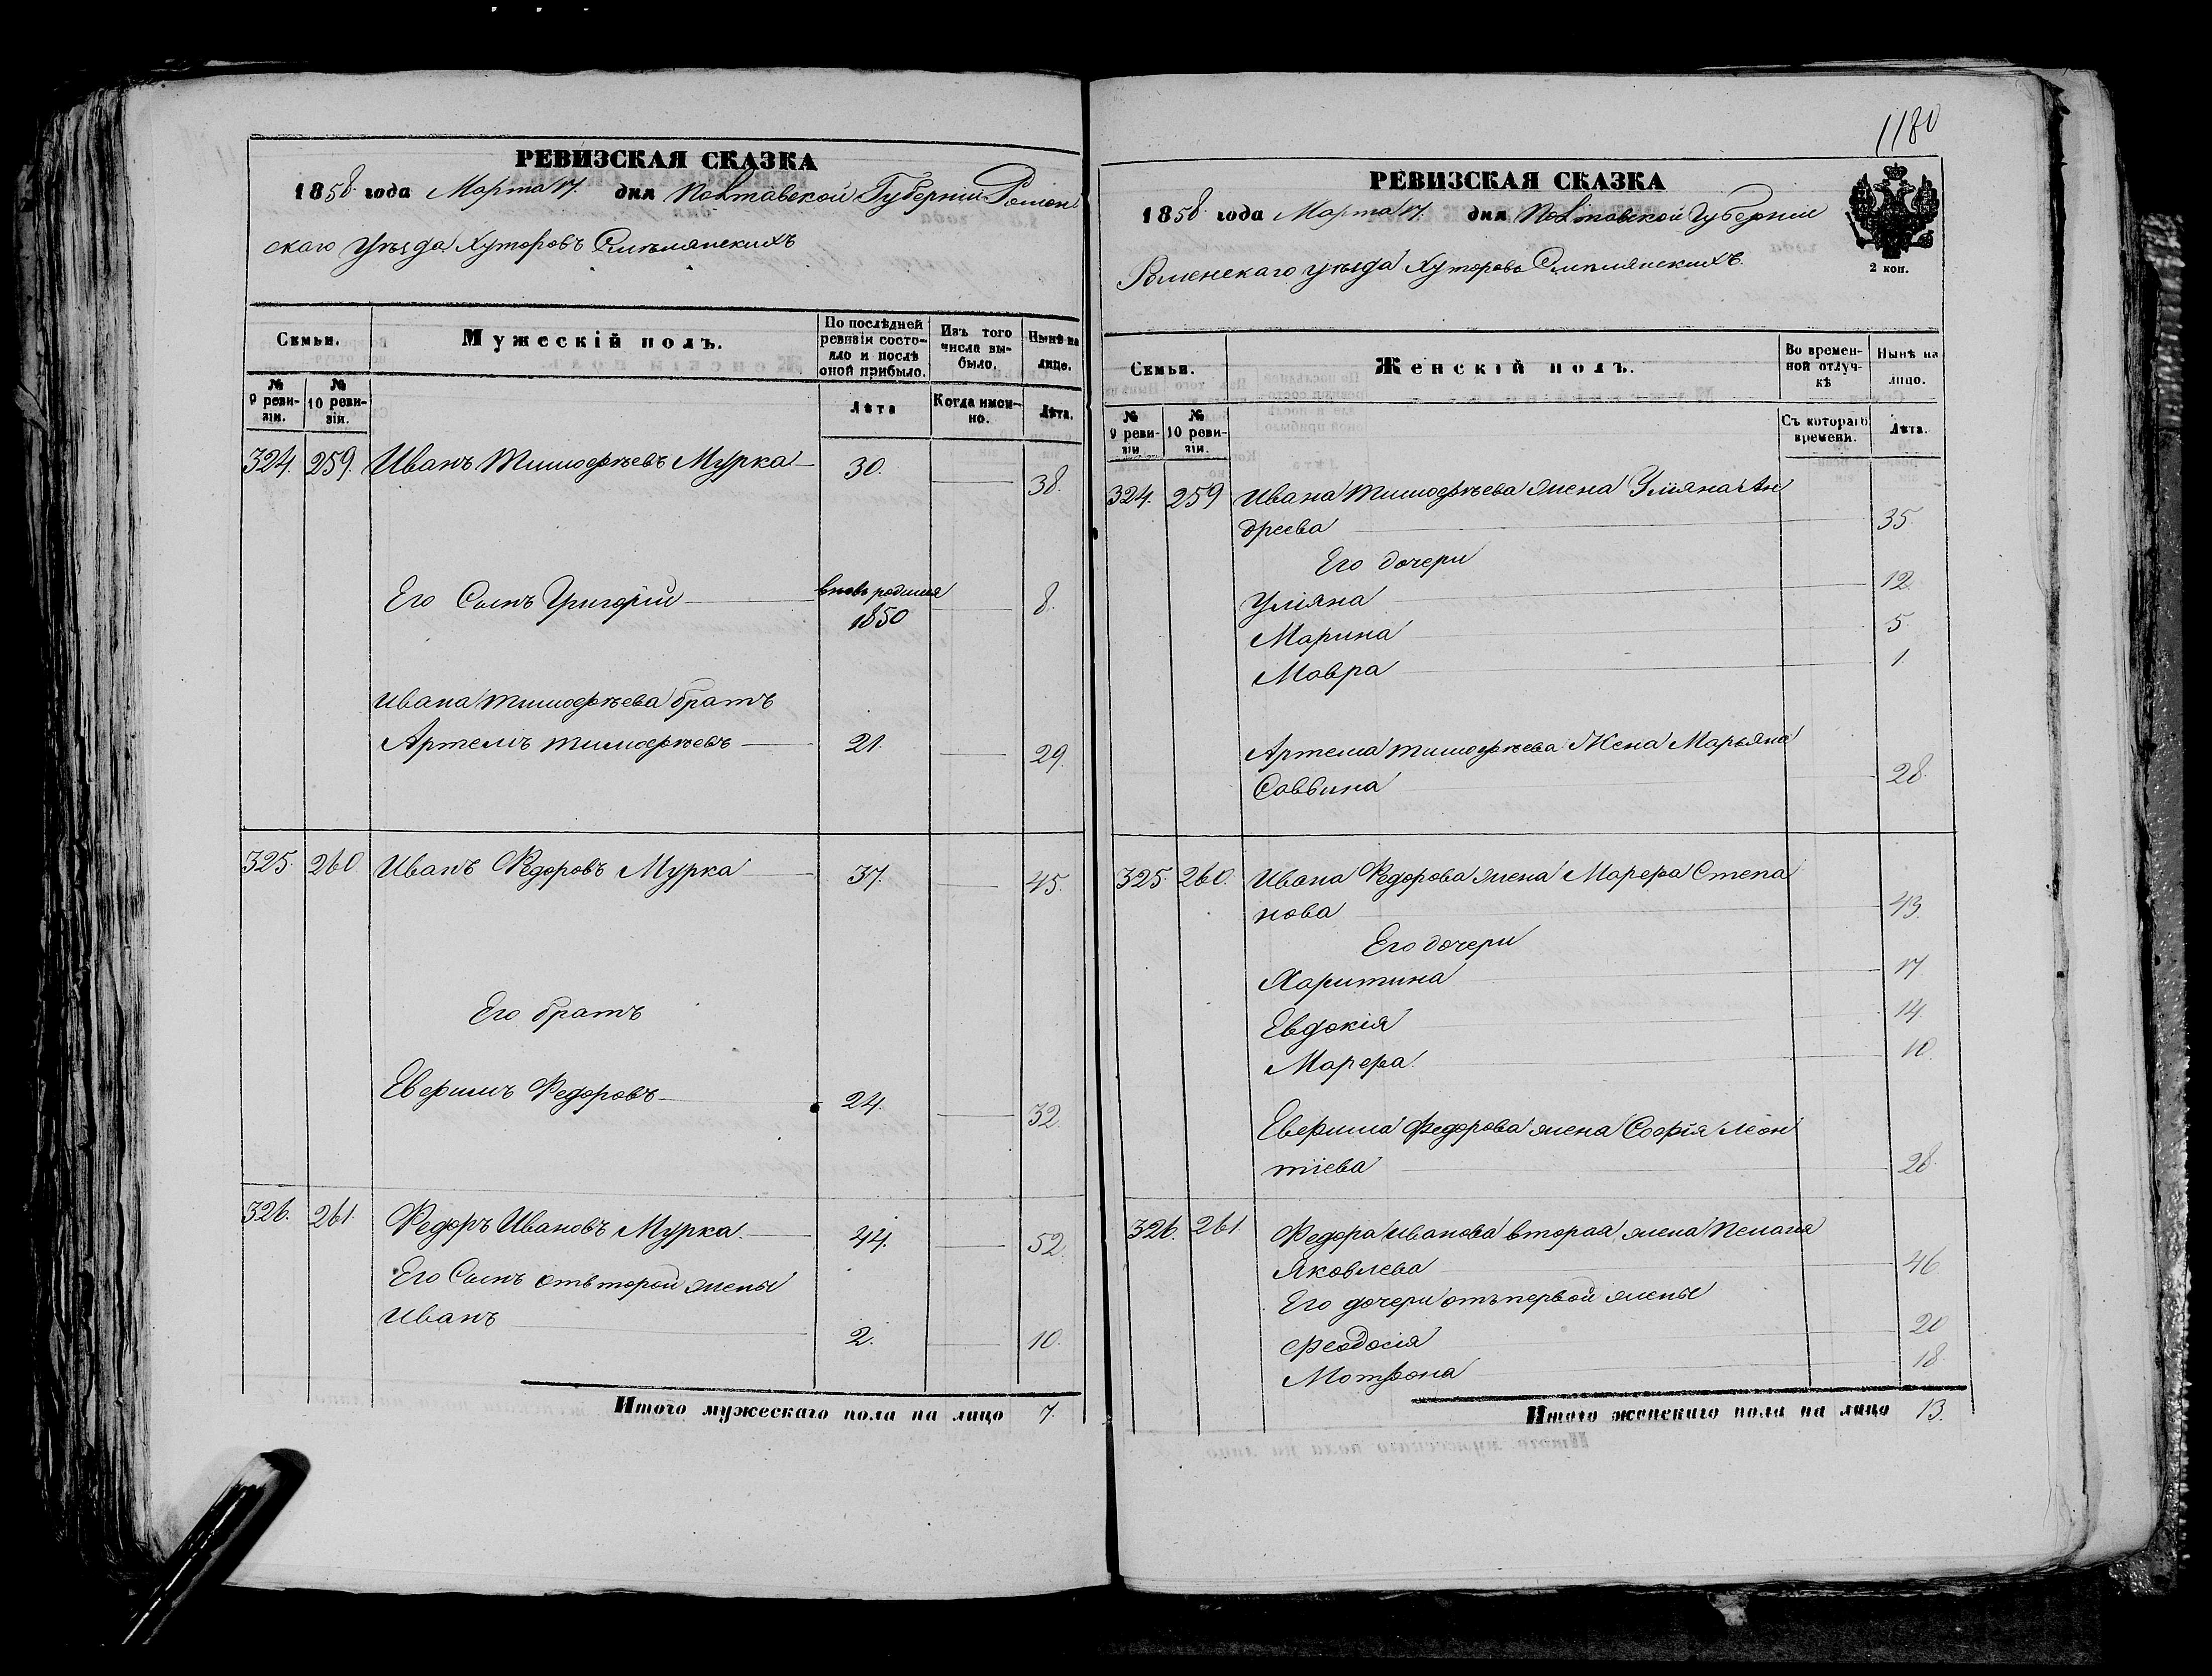 РЕВИЗСКАЯ СКАЗКА
1858 года Марта 17. дня Полтавской Губерніи Ромен
скаго Уѣзда Хуторовъ
Семьи.
Мужескій полъ.
По послѣдней ревизіи состояло и послѣ оной прибыло.
Изъ того числа выбыло.
Нынѣ на лицо.
№ 9 ревизіи.
№ 10 ревизіи.
Лѣта
Когда именно.
Лѣта.
324. 259. Иванъ Тимофѣевъ Мурка 30. 38.
Его Сынъ Григорій вновь родился 1850 8.
Ивана Тимофѣева братъ
Артемъ Тимофѣевъ 21. 29.
325. 260 Иванъ Федоровъ Мурка 37. 45.
Его братъ
Евфимъ Федоровъ 24. 32.
326. 261. Федоръ Ивановъ Мурка 44. 52.
Его Сынъ отвторой жены
Иванъ 2. 10.
Итого мужескаго пола на лицо 7.
1180
РЕВИЗСКАЯ СКАЗКА
1858 года Марта 17. дня Полтавской Губерніи
2 коп.
Роменскаго уѣзда Хуторовъ
Семьи.
Женскій полъ.
Во временной отлучкѣ
Нынѣ на лицо.
№ 9 ревизіи
№ 10 ревизіи.
Съ котораго времени.
Лѣта.
324. 259 Ивана Тимофѣева жена Уліяна Ан
дреева 35
Его дочери
Уліяна 12
Марина 5
Мавра 1
Артема Тимофѣева Жена Марьяна
Саввина 28.
325. 260. Ивана Федорова жена Марфа Степа
нова 43.
Его дочери
Харитина 17
Евдокія 14.
Марфа 10.
Евфима Федорова жена Софія Леон
тіева 28.
326. 261 Федора Иванова вторая жена Пелагія
Яковлева 46
Его дочери отъ первой жены
Феодосія 20
Мотрона 18.
Итого женскаго пола на лицо 13.